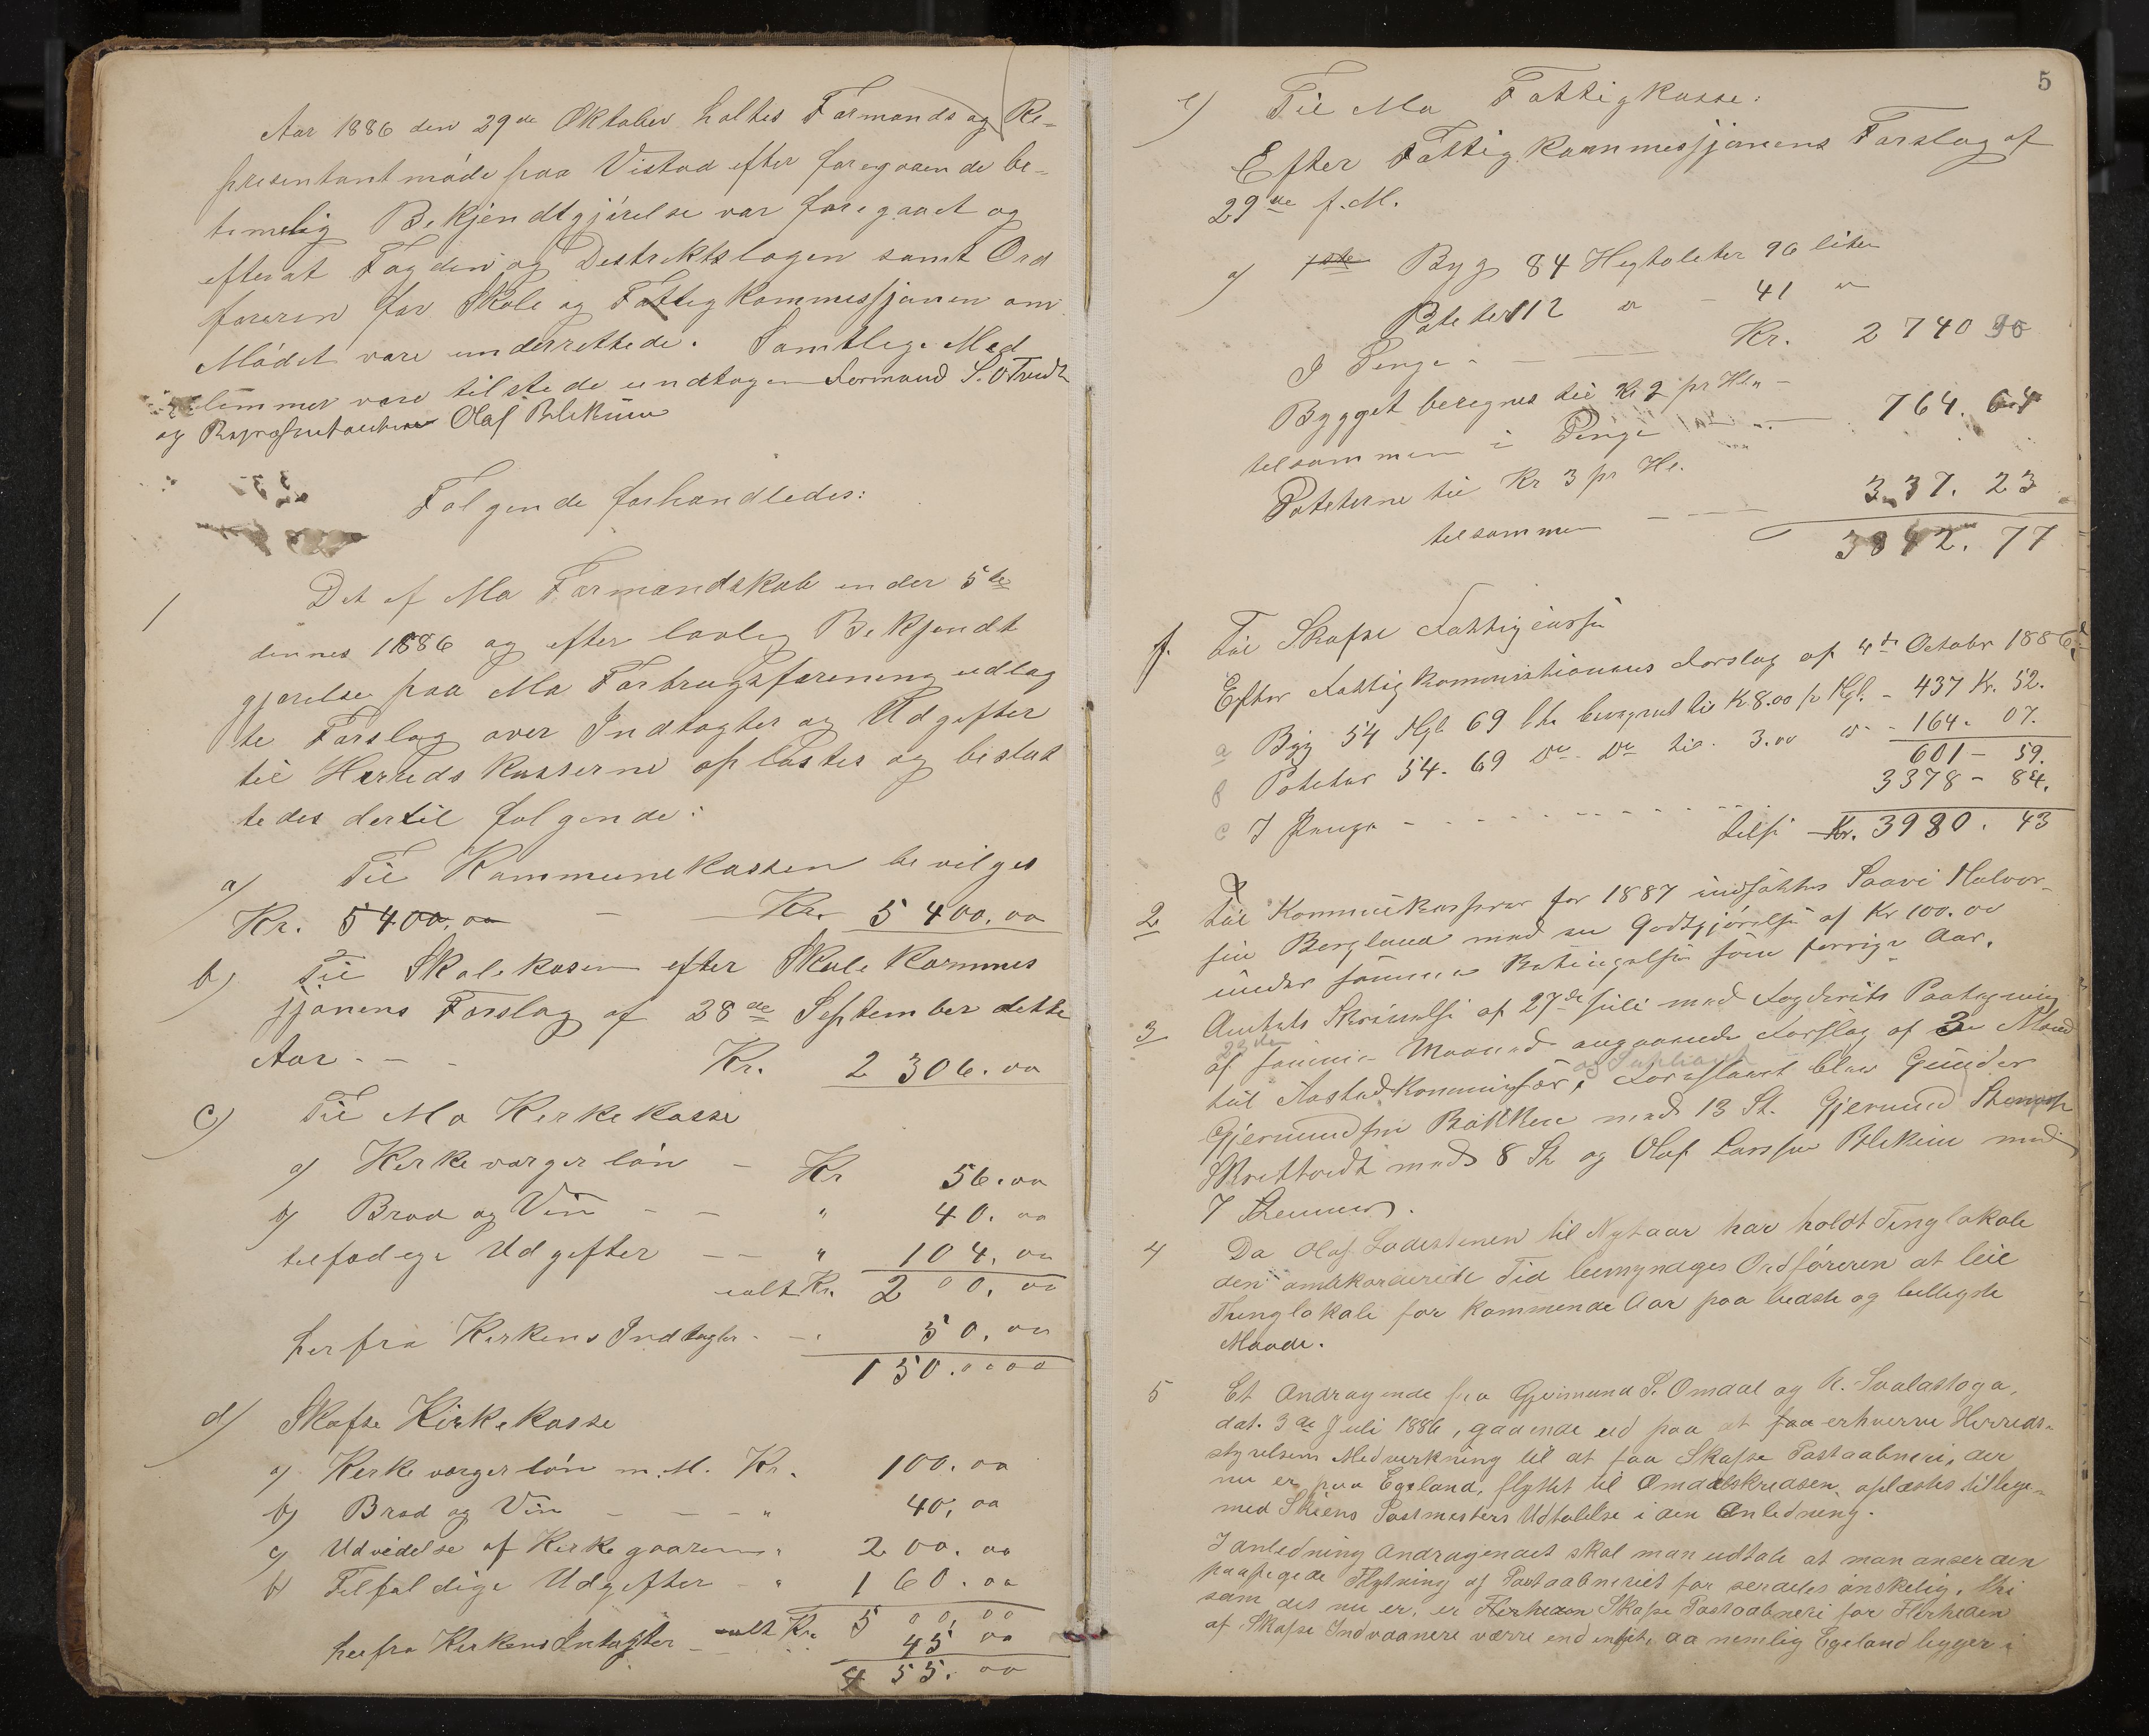 Aar 1886 den 29de Oktober holtes Formands og Re=
presentantmöde paa Vistad efter foregaaende be=
timelig Bekjendtgjörelse var foregaaet og
efterat Fogden og Destriktslagen samt Ord
föreren for Skole og Fattigkommessjonen om
Mödet vare underrettede. Samtlege Med
lemmer vare tilstede undtagen Formand S. O.
og Repræsentanterne Olaf Blekum
Fölgende forhandledes:
1 Det af Mo Formandskab under 5te
dennes 1886 og efter lovleg Bekjendt
gjörelse paa Mo Forbrugsforening udlag
te Forslag over Indtagter og Udgifter
til Herredskasserne oplæstes og beslut
tedes dertil fölgende:
a) Til Kommunekassen bevilges
Kr. 5400,00 — Kr. 5400.00
b) Til Skolekasen efter Skolekommes
jonens Forslag af 28de September dette
Aar - - - Kr. 2306.00
c) Til Mo Kirkekasse
a) Kerkevargerlön - Kr 56.00
b) Brod og Vin - - " 40.00
telfædege Udgefter - - " 104.00
ialt Kr. 200.00
herfra Kerkens Indtagter - - 50.00
150.0000
d) Skafse Kirkekasse
a) Kerkevargerlön m.M. Kr. 100.00
b) Brod og Vin - - - " 40,00
c) Udvidelse af Kerkegaaren " 200.00
b) Telfaldige Udgefter - " 160.00
ialt Kr. 500,00
herfra Kerkens Intagter - 45 00
455.00
5
e) Til Mo Fattigkasse:
Efter Fattigkommessjonens Forslag af
29de f.M.
a) 1ste Byg 84 Hegtoleter 96 liter
Poteter 112 " - 41 "
I Penge - - Kr. 2740 90
Bygget beregnes til Kr 9 pr Hl. -
telsammen i Penge - 764. 64
Poteterne til Kr 3 pr Hl.
telsammen - - 337. 23
3842. 77
f. Til Skafse Fattigcasse
Efter Fattigkommisionens Forslag af 4de Octobr 1886
a Byg 54 Hgl 69 ltr beregnet til Kr 8.00 pr Hgl. - 437 Kr. 52.
b Poteter 54. 69 Do Do til. 3.00 " - 164. 07.
601 - 59.
c I Penge - - - - 3378 - 84.
tils. Kr. 3980. 43
2 Til Kommunekasserer for 1887 indsattes Saavi Halvor-
sen Bergland med en Godtgjörelse af Kr 100.00
under samme Betingelse som forrige Aar.
3 Amtets Skrivelse af 27de Juli med Fogderiets Paategning
29de
af samme Maaned angaaende Forslag af 3de Mænd
til Aastedkommissær, Foreslaaet blev Gunder
Gjermundsen Bakken med 13 St. Gjermund
Skrettvedt med 8 St og Olaf Larssen Blekum med
7 Stemmer.
4 Da Olaf Ladestenen til Nytaar har holdt Tinglokale
den omakorderede Tid bemyndiges Ordföreren at leie
Thinglokale for kommende Aar paa bedste og belligste
Maade.
5 Et Andragende fra Gjermund S. Omdal og K. Svalastoga,
dat. 3de Juli 1886, gaaende ud paa at faa erhverve Herreds-
styrelsens Medverkning til at faa Skafse Postaabneri, der
nu er paa Egeland, flyttet til Omdalskredsen, oplæstes tillige-
med Skiens Postmesters Udtalelse i den Anledning.
I anledning Andragendet skal man udtale at man anser den
paapegede Flytning af Postaabneriet for serdeles önskelig, thi
som det nu er, er Herheden Skafse Postaabneri for Flerheden
af Skafse Indvaanere værre end intet, da nemlig Egeland ligger i